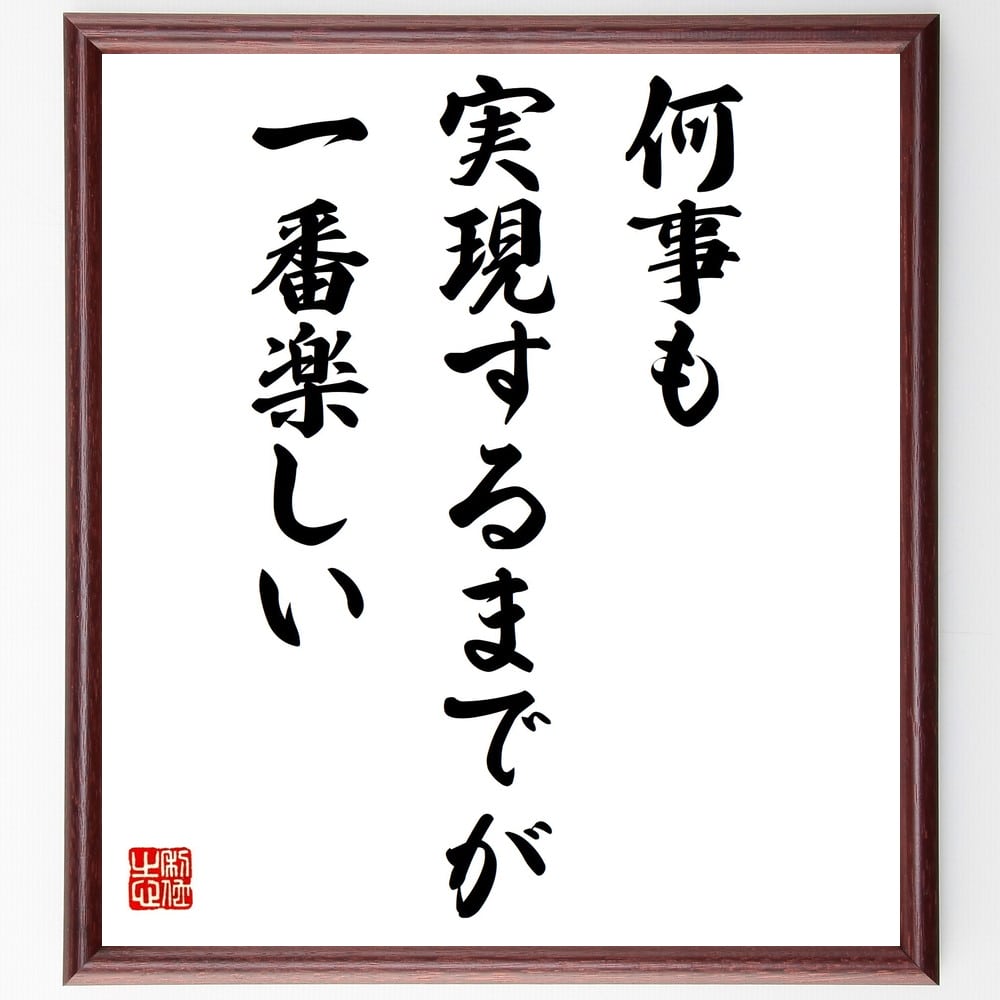 何事も
実現するまでが
一番楽しい